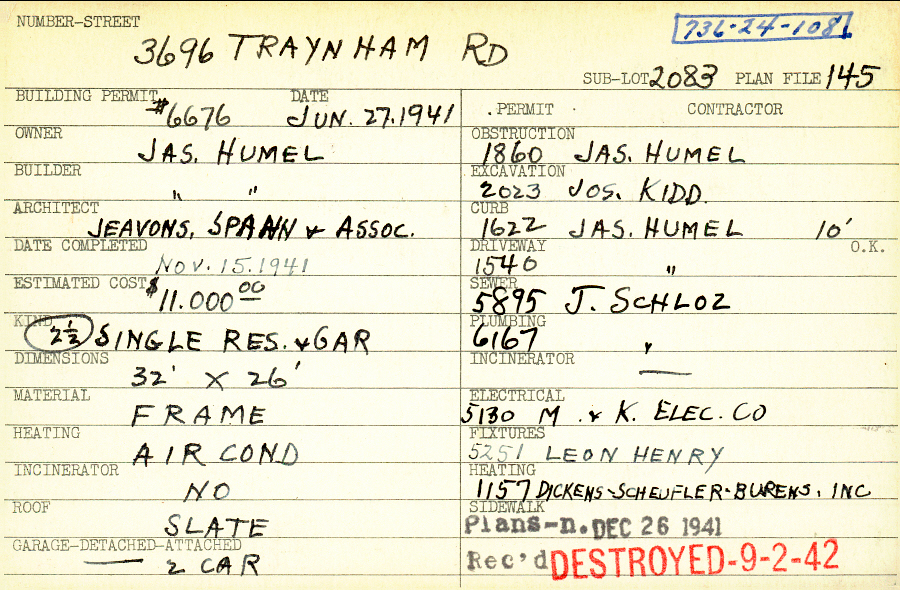 NUMBER-STREET
3696 TRAYNHAM RD
736-24-108
SUB-LOT 2083 PLAN FILE 145
BUILDING PERMIT DATE
#6676 JUN. 27.1941
OWNER
JAS. HUMEL
BUILDER
" "
ARCHITECT
JEAVONS, SPAHN & ASSOC.
DATE COMPLETED
NOV. 15.1941
ESTIMATED COST $11.000 00
KIND
2½ SINGLE RES. & GAR
DIMENSIONS
32' X 26'
MATERIAL
FRAME
HEATING
AIR COND
INCINERATOR
NO
ROOF
SLATE
GARAGE-DETACHED-ATTACHED
2 CAR
PERMIT CONTRACTOR
OBSTRUCTION
1860 JAS. HUMEL
EXCAVATION
2023 JOS. KIDD.
CURB
1622 JAS. HUMEL 10'
DRIVEWAY O.K.
1540 "
SEWER
5895 J. SCHLOZ
PLUMBING
6167 "
INCINERATOR
—
ELECTRICAL
5130 M. & K. ELEC. CO
FIXTURES
5251 LEON HENRY
HEATING
1157 DICKENS-SCHEUFLER-BURENS, INC
SIDEWALK
Plans-n. DEC 26 1941
Rec'd DESTROYED-9-2-42